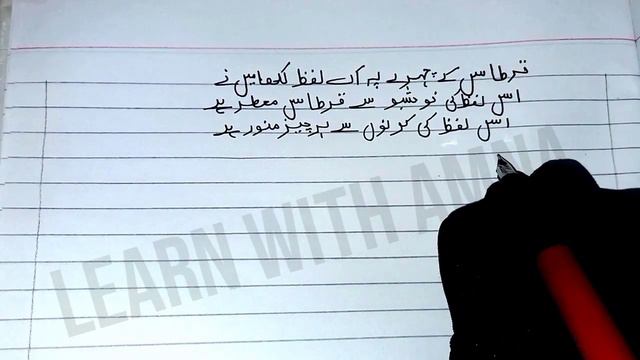 قرطاس کے چہرے پہ اک لفظ لکھا میں نے
اس لفظ کی خوشبو سے قرطاس معطر ہے
اس لفظ کی کرنوں سے ہر چیز منور ہے
LEARN WITH AMNA